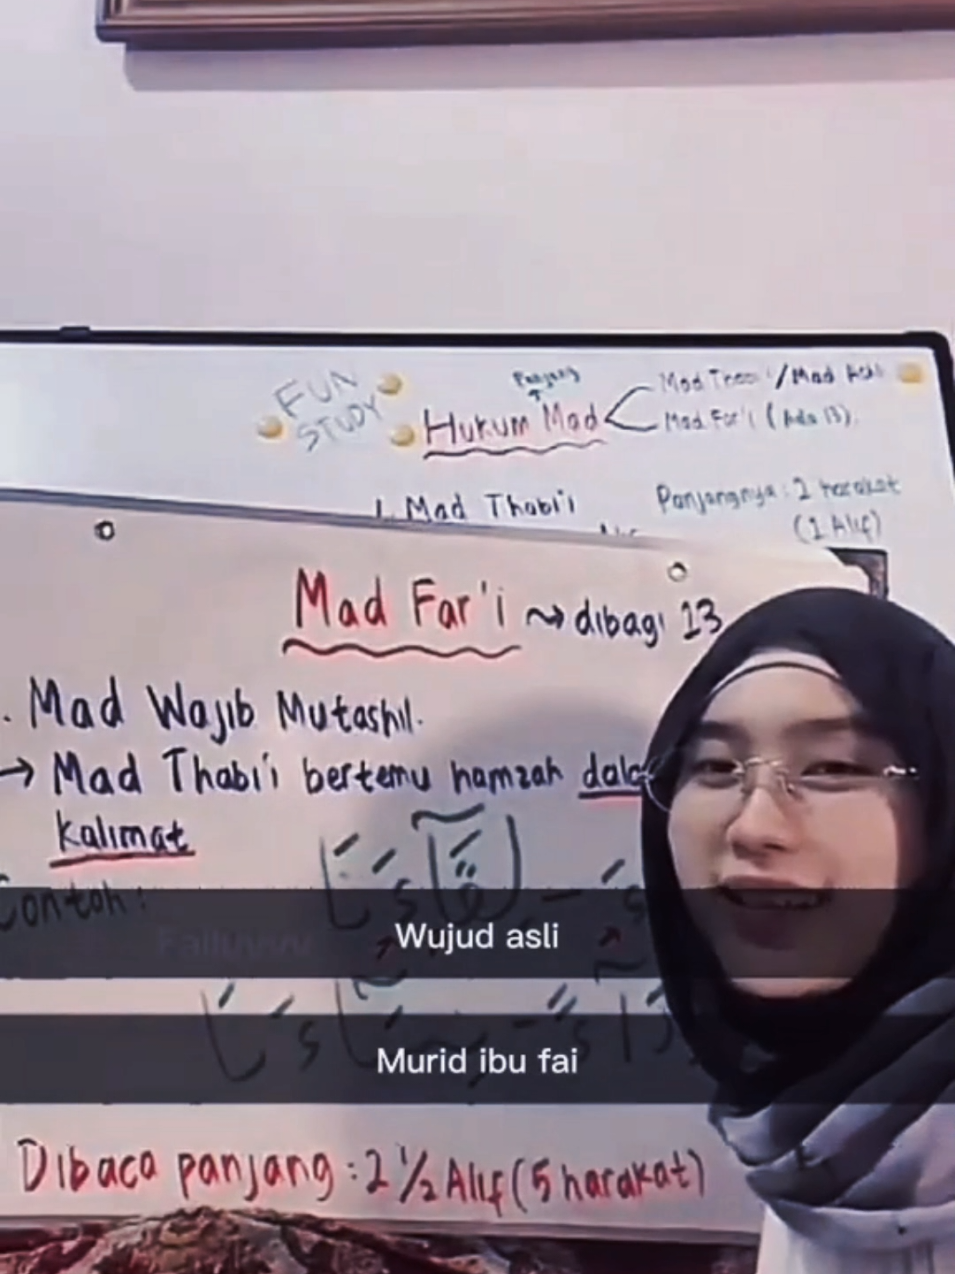 FUN
STUDY
Panjang
Hukum Mad
Mad Thobi'i/Mad Asli
Mad Far'i (Ada 13)
1. Mad Thobi'i
Panjangnya: 2 harakat
(1 Alif)
Mad Far'i → dibagi 13
. Mad Wajib Mutashil.
→ Mad Thabi'i bertemu hamzah dala
kalimat
Contoh:
Wujud asli
Murid ibu fai
Dibaca panjang: 2 1/2 Alif (5 harakat)